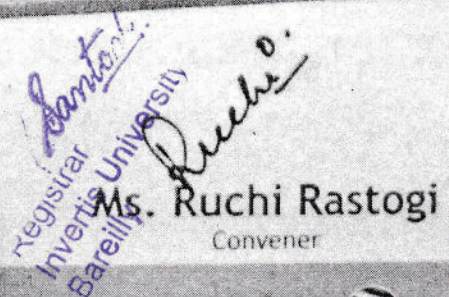 Santosh
Registrar
Invertis University
Bareilly
Ruchi
Ms. Ruchi Rastogi
Convener